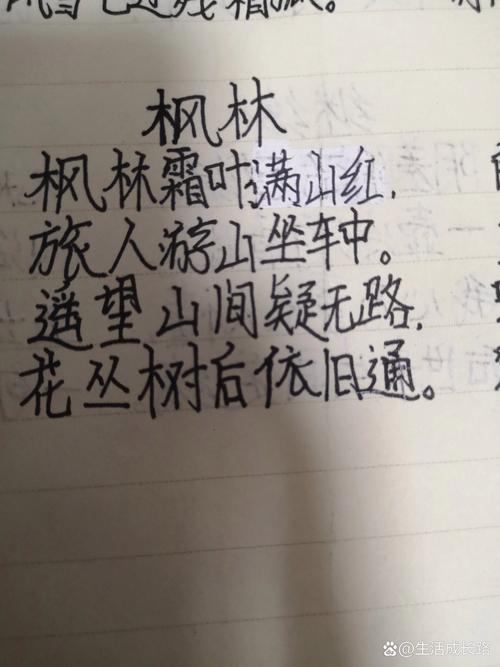 枫林
枫林霜叶满山红.
旅人游山坐车中。
遥望山间疑无路.
花丛树后依旧通。
@生活成长路